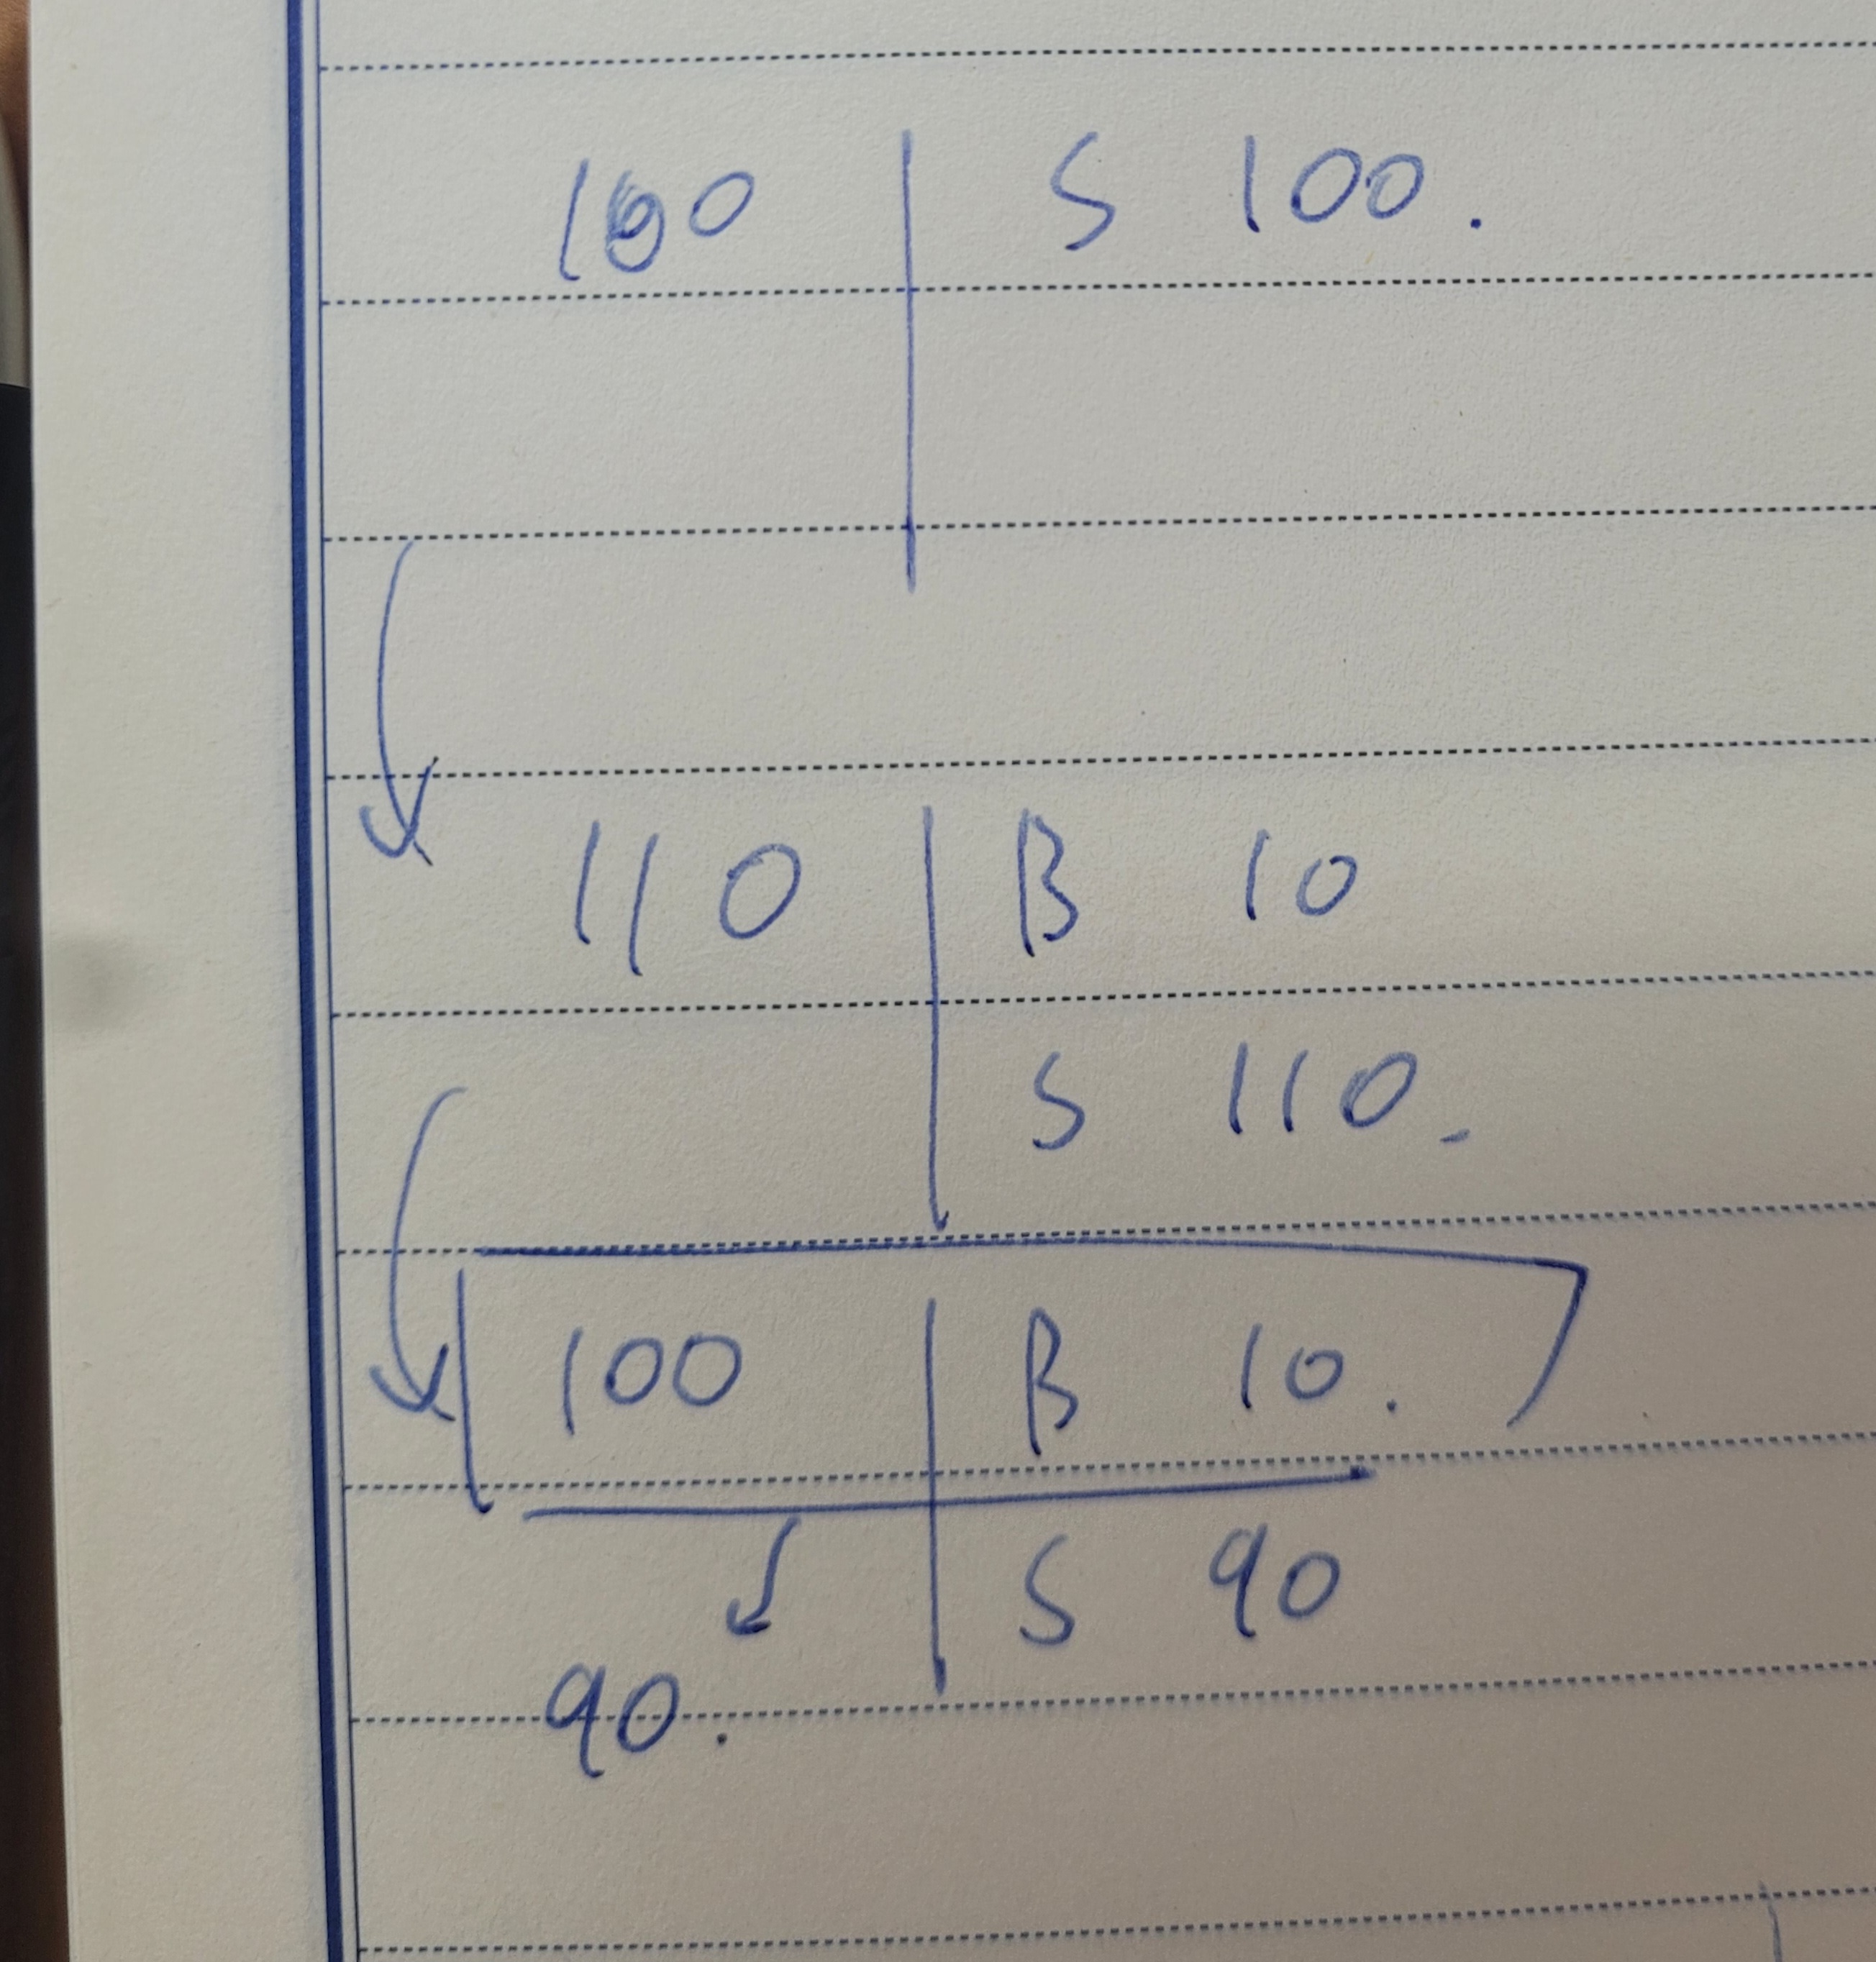 100 | S 100.
110 | B 10
S 110.
100 | B 10.
S 90
90.